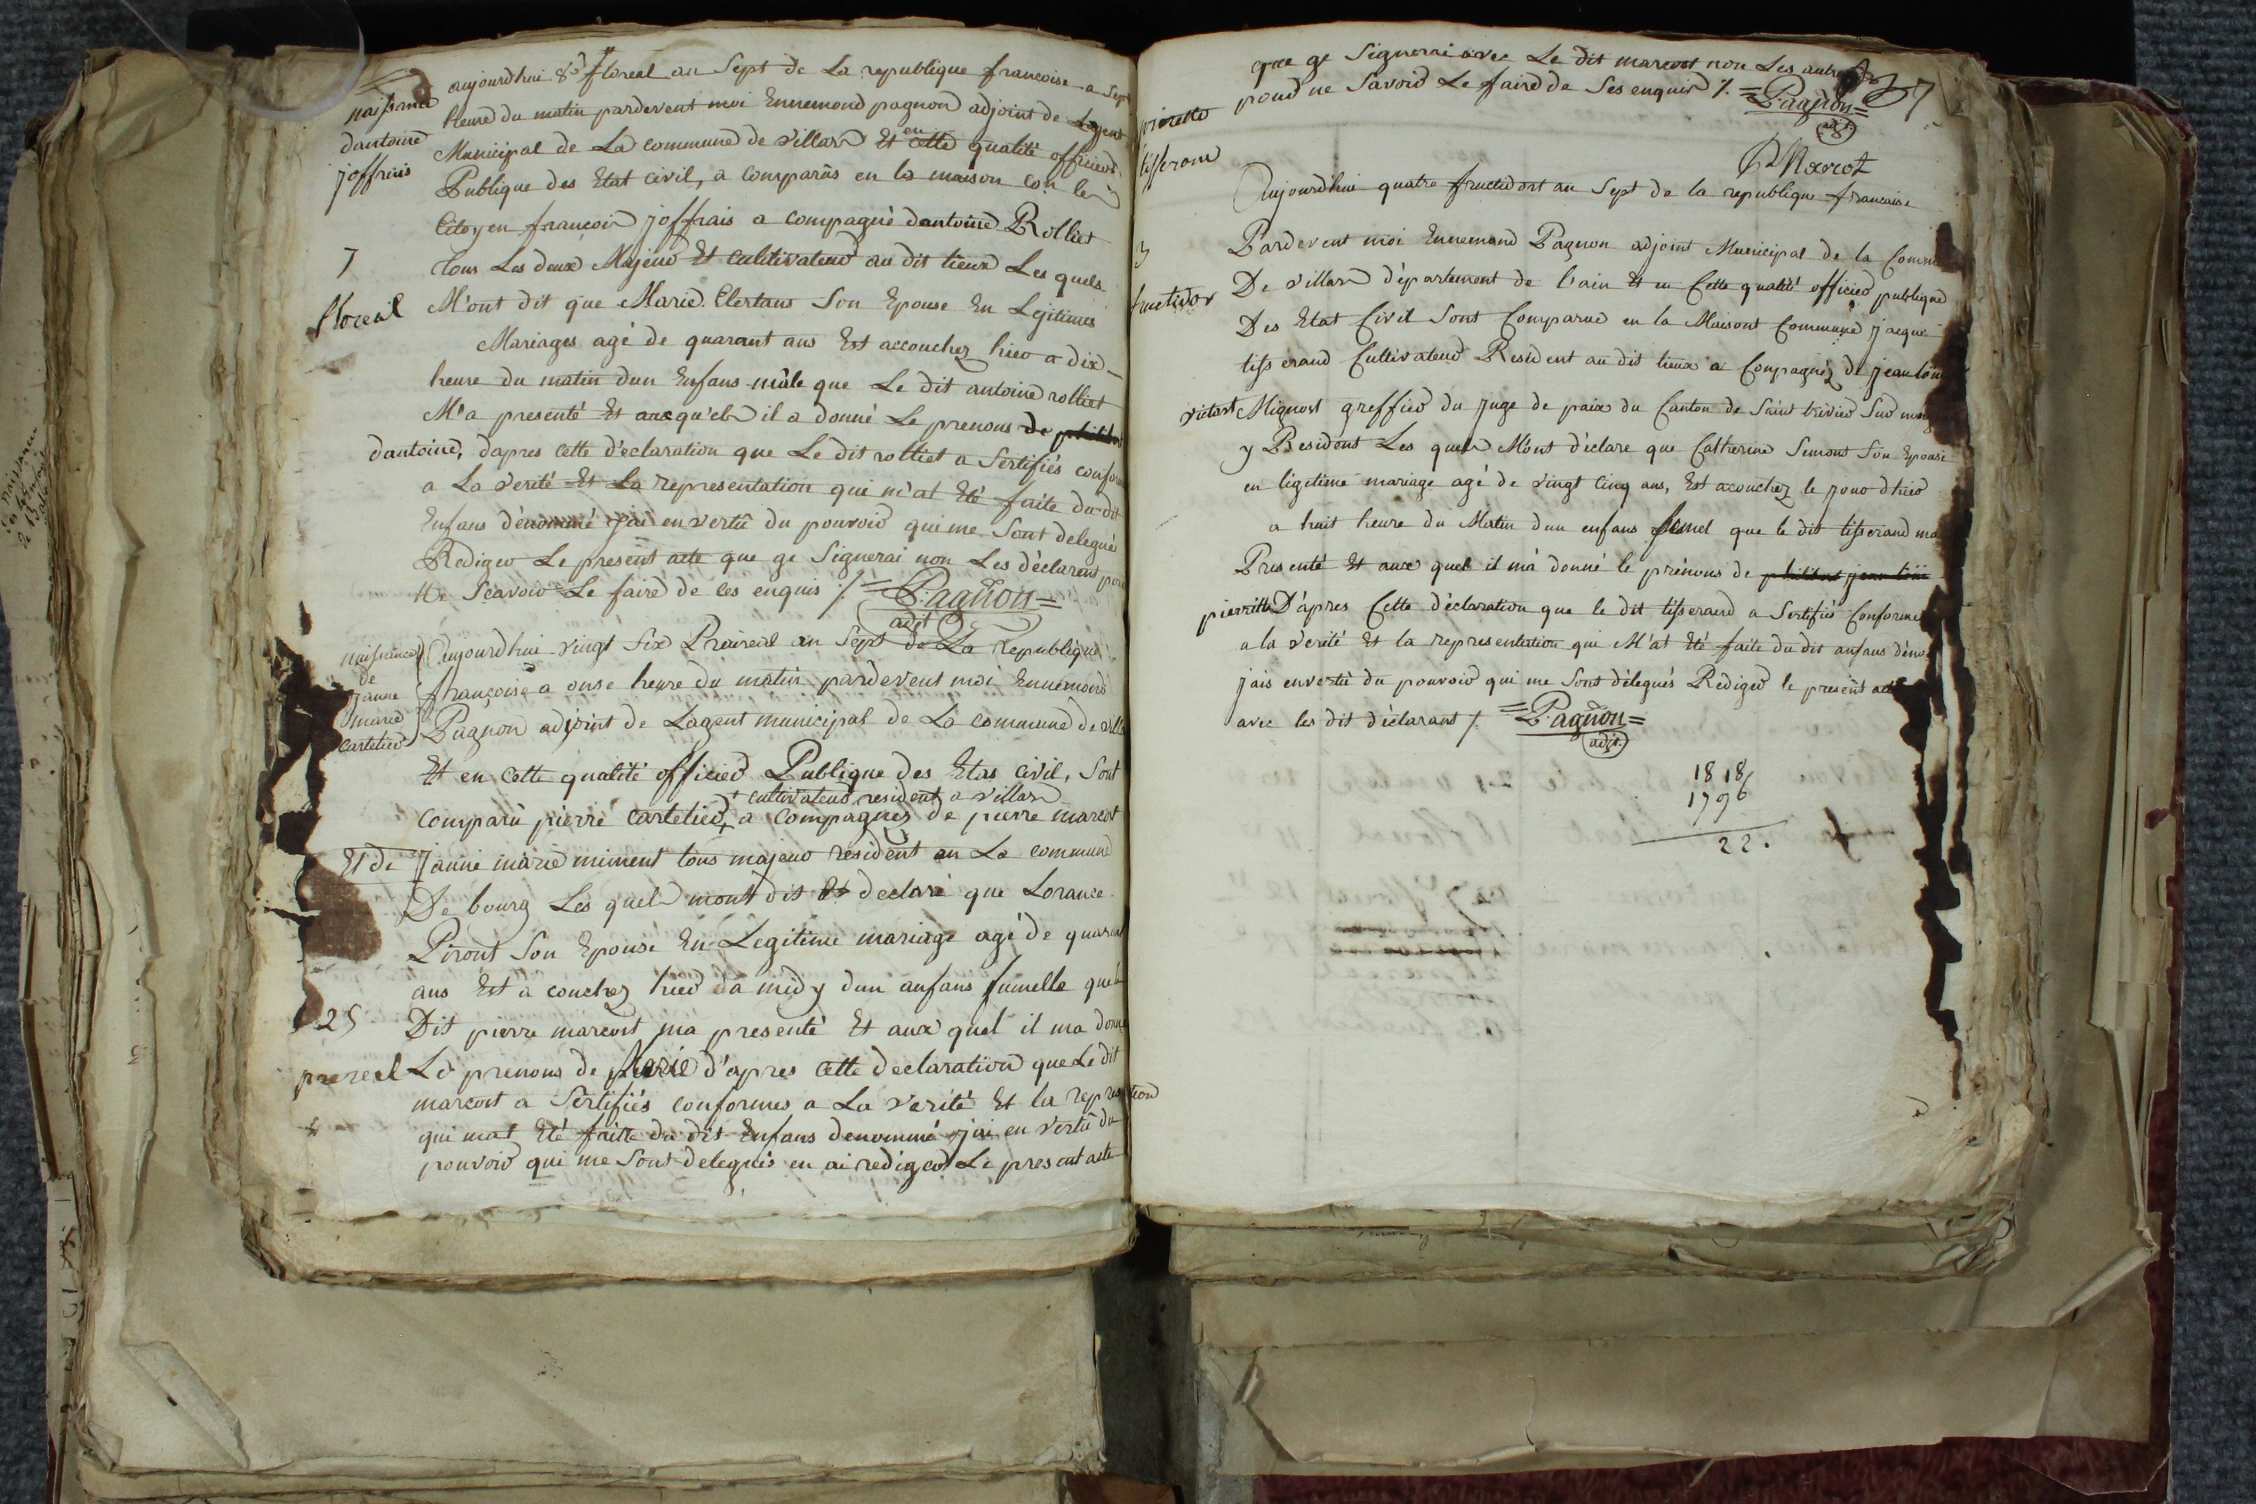 naissance
dantoine
joffrais
7
floreal
aujourdhui 8e floreal an Sept de La republique francoise a Sept
heure du matin pardevent moi Ennemond pagnon adjoint de Lagent
Municipal de La commune de villars Et en cette qualité officier
Publique des Etat civil, a comparûs en la maison com le
Citoyen françois joffrais a compagné dantoine Rolliet
tous Les deux Majeur Et cultivateur au dit lieux Les quels
M'ont dit que Marie Clertans Son Epouse En Legitimes
Mariages agé de quarant ans Est accouchez hier a dix
heure du matin dun Enfans mâle que Le dit antoine rolliet
M'a presenté Et aux qu'els il a donné Le prenons de
dantoine, dapres cette d'eclaration que Le dit rolliet a Sertifiés conforme
a La verité Et La representation qui m'at Eté faite du dit
Enfans dénommé jai en vertû du pouvoir qui me Sont delegués
Rediger Le present acte que ge Signerai non Les déclarent pour
Ne Sçavoir Le faire de ces enquis /. = Pagnon =
adjt
naissance
de
janne
marie
Cartelier
Aujourdhui vingt Six Prairial an Sept de La Republique
françoise a onse heure du matin pardevent moi Ennemond
Pagnon adjoint de Lagent municipal de La commune de villars
Et en cette qualité officier Publique des Etas civil, Sont
+ cultivateur resident a villars
comparû pierre cartelier + a Compagnés de pierre marcost
Et de janne marie miment tous majeur resident en La commune
De bourg Les quels mont dit Et declaré que Lorance
Piront Son Epouse En Legitime mariage agé de quarant
ans Est a couchez hier a midy dun anfans fumelle que le
25
prereal
Dit pierre marcost ma presenté Et aux quel il ma donné
Le prenons de Marie d'apres cette declaration que Le dit
marcost a Sertifiés conformes a La verité Et la representation
qui mat Eté faitte du dit Enfans denommé jai en vertû du
pouvoir qui me Sont delegués en ai rediger Le present acte
que ge Signerai avec Le dit marcost non Les autre
pour ne Savoir Le faire de Ses enquis /. = Pagnon =
adjt
P Marcot
pierrette
tisserand
3
fructidor
Aujourdhui quatre fructidort an Sept de la republique francaise
Pardevent moi Ennemond Pagnon adjoint Municipal de la Commune
De villars d'épartement de l'ain Et en Cette qualité officier publique
Des Etat Civil Sont Comparue en la Maisont Commune jacque
tisserand Cultivateur Resident au dit lieux a Compagnéz de jean
victort Mignost greffier du juge de paix du Canton de Saint trivier Sur
y Residont Les quels M'ont déclare que Catherine Simont Son Epouse
en légitime mariage agé de vingt Cinq ans, Est acouchez le jour dhier
a huit heure du Matin dun enfans femel que le dit tisserand ma
Presenté Et aux quel il m'a donné le prénons de
pierrette D'âpres Cette d'éclaration que le dit tisserand a Sertifiés Conforme
a la verité Et la representation qui M'at Eté faite du dit anfans déno
jais envertû du pouvoir qui me Sont délegués Rediger le present acte
avec les dit déclarant /. = Pagnon =
adjt.
1818
1796
22.